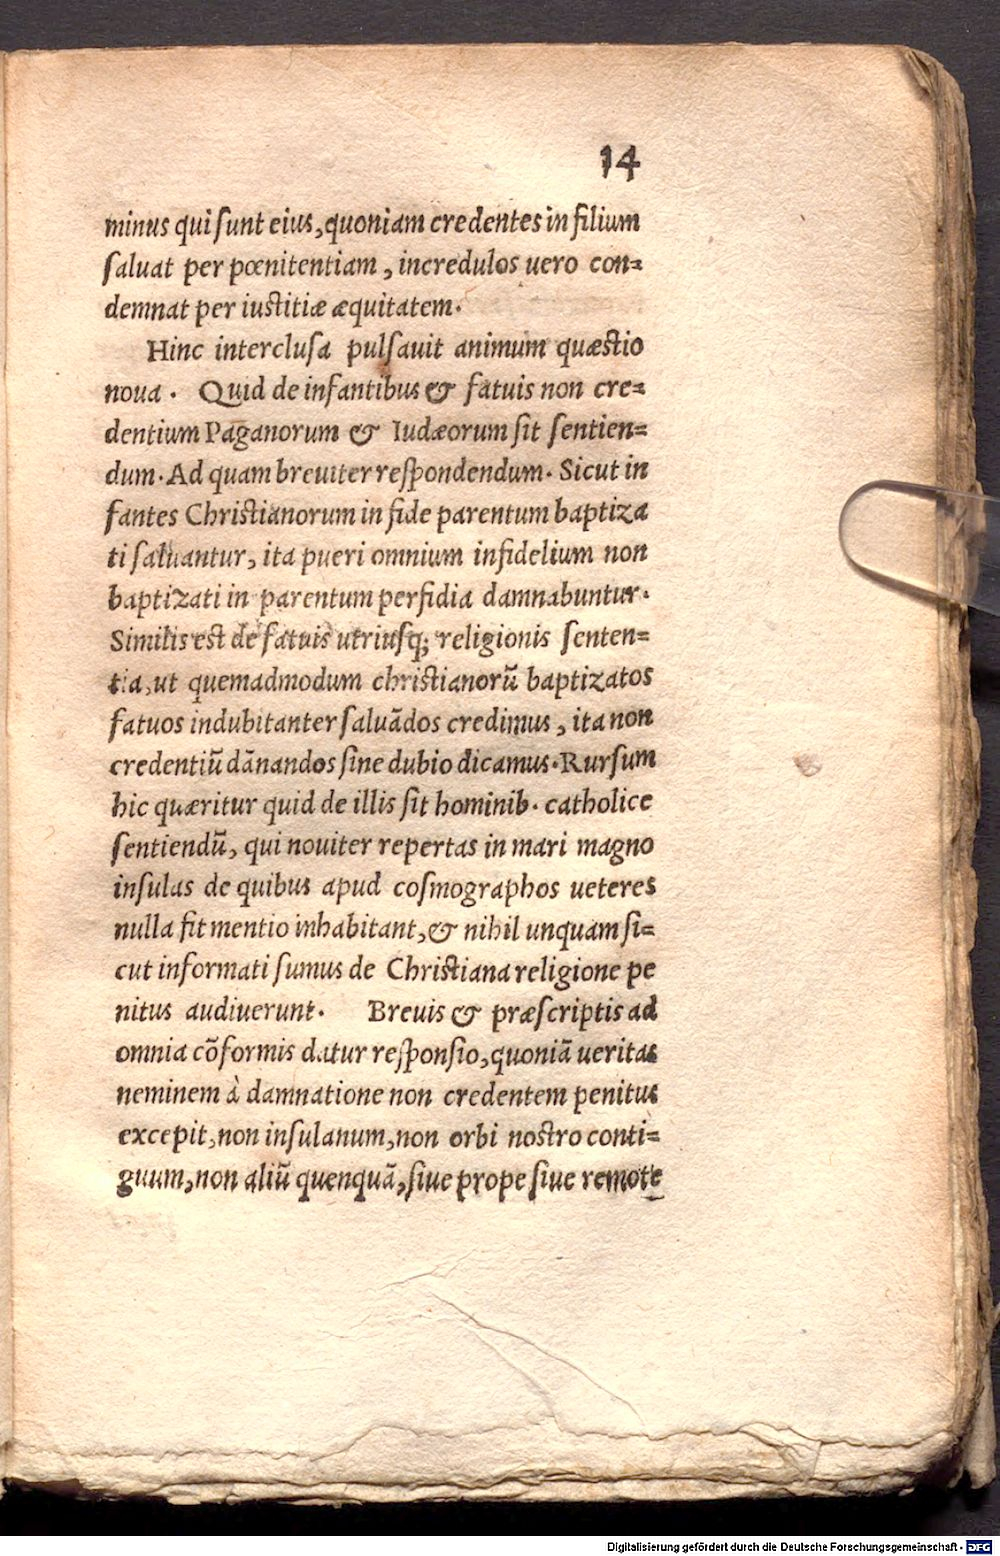 14
minus qui sunt eius, quoniam credentes in filium
saluat per pœnitentiam, incredulos uero con=
demnat per iustitiæ æquitatem.
Hinc interclusa pulsauit animum quæstio
noua. Quid de infantibus & fatuis non cre=
dentium Paganorum & Iudæorum sit sentien=
dum. Ad quam breuiter respondendum. Sicut in
fantes Christianorum in fide parentum baptiza
ti saluantur, ita pueri omnium infidelium non
baptizati in parentum perfidia damnabuntur.
Similis est de fatuis utriusq; religionis senten=
tia, ut quemadmodum christianorũ baptizatos
fatuos indubitanter saluãdos credimus, ita non
credentiũ dãnandos sine dubio dicamus. Rursum
hic quæritur quid de illis sit hominib. catholice
sentiendũ, qui nouiter repertas in mari magno
insulas de quibus apud cosmographos ueteres
nulla fit mentio inhabitant, & nihil unquam si=
cut informati sumus de Christiana religione pe
nitus audiuerunt. Breuis & præscriptis ad
omnia cõformis datur responsio, quoniã ueritas
neminem à damnatione non credentem penitus
excepit, non insulanum, non orbi nostro conti=
guum, non aliũ quenquã, siue prope siue remote
Digitalisierung gefördert durch die Deutsche Forschungsgemeinschaft - DFG